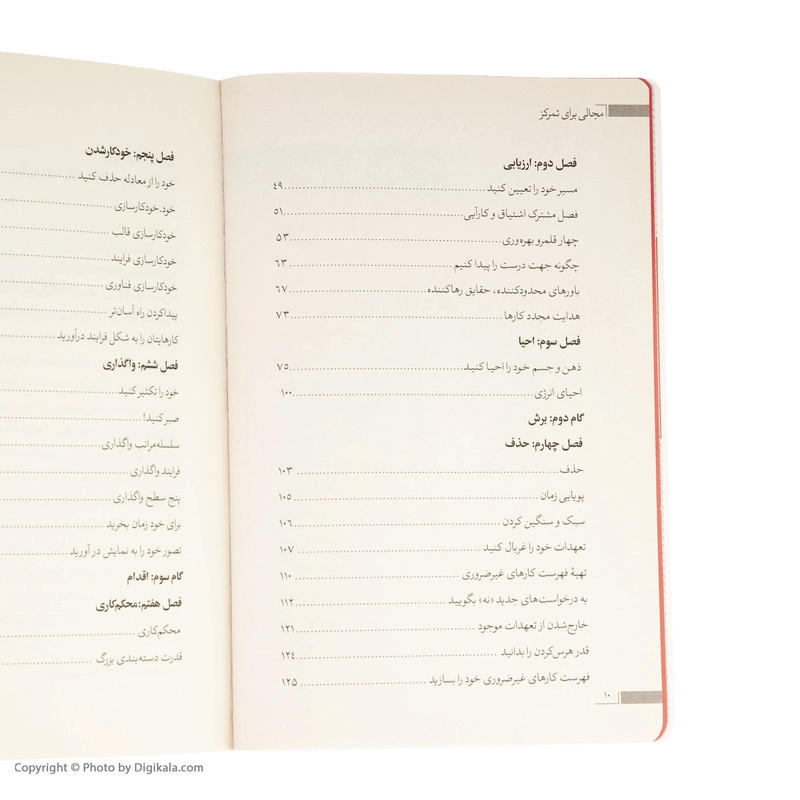 مجالی برای تمرکز
فصل دوم: ارزیابی
مسیر خود را تعیین کنید ..... ۴۹
فصل مشترک اشتیاق و کارآیی ..... ۵۱
چهار قلمرو بهره‌وری ..... ۵۳
چگونه جهت درست را پیدا کنیم ..... ۶۳
باورهای محدودکننده، حقایق رهاکننده ..... ۶۷
هدایت مجدد کارها ..... ۷۳
فصل سوم: احیا
ذهن و جسم خود را احیا کنید ..... ۷۵
احیای انرژی ..... ۱۰۰
گام دوم: برش
فصل چهارم: حذف
حذف ..... ۱۰۳
پویایی زمان ..... ۱۰۵
سبک و سنگین کردن ..... ۱۰۶
تعهدات خود را غربال کنید ..... ۱۰۷
تهیهٔ فهرست کارهای غیرضروری ..... ۱۱۰
به درخواست‌های جدید «نه» بگویید ..... ۱۱۲
خارج‌شدن از تعهدات موجود ..... ۱۲۱
قدر هرس‌کردن را بدانید ..... ۱۲۴
فهرست کارهای غیرضروری خود را بسازید ..... ۱۲۵
۱۰
فصل پنجم: خودکارشدن
خود را از معادله حذف کنید
خود.خودکارسازی
خودکارسازی قالب
خودکارسازی فرایند
خودکارسازی فناوری
پیداکردن راه آسان‌تر
کارهایتان را به شکل فرایند درآورید
فصل ششم: واگذاری
خود را تکثیر کنید
صبر کنید!
سلسله‌مراتب واگذاری
فرایند واگذاری
پنج سطح واگذاری
برای خود زمان بخرید
تصور خود را به نمایش در آورید
گام سوم: اقدام
فصل هفتم:محکم‌کاری
محکم‌کاری
قدرت دسته‌بندی بزرگ
Copyright © Photo by Digikala.com